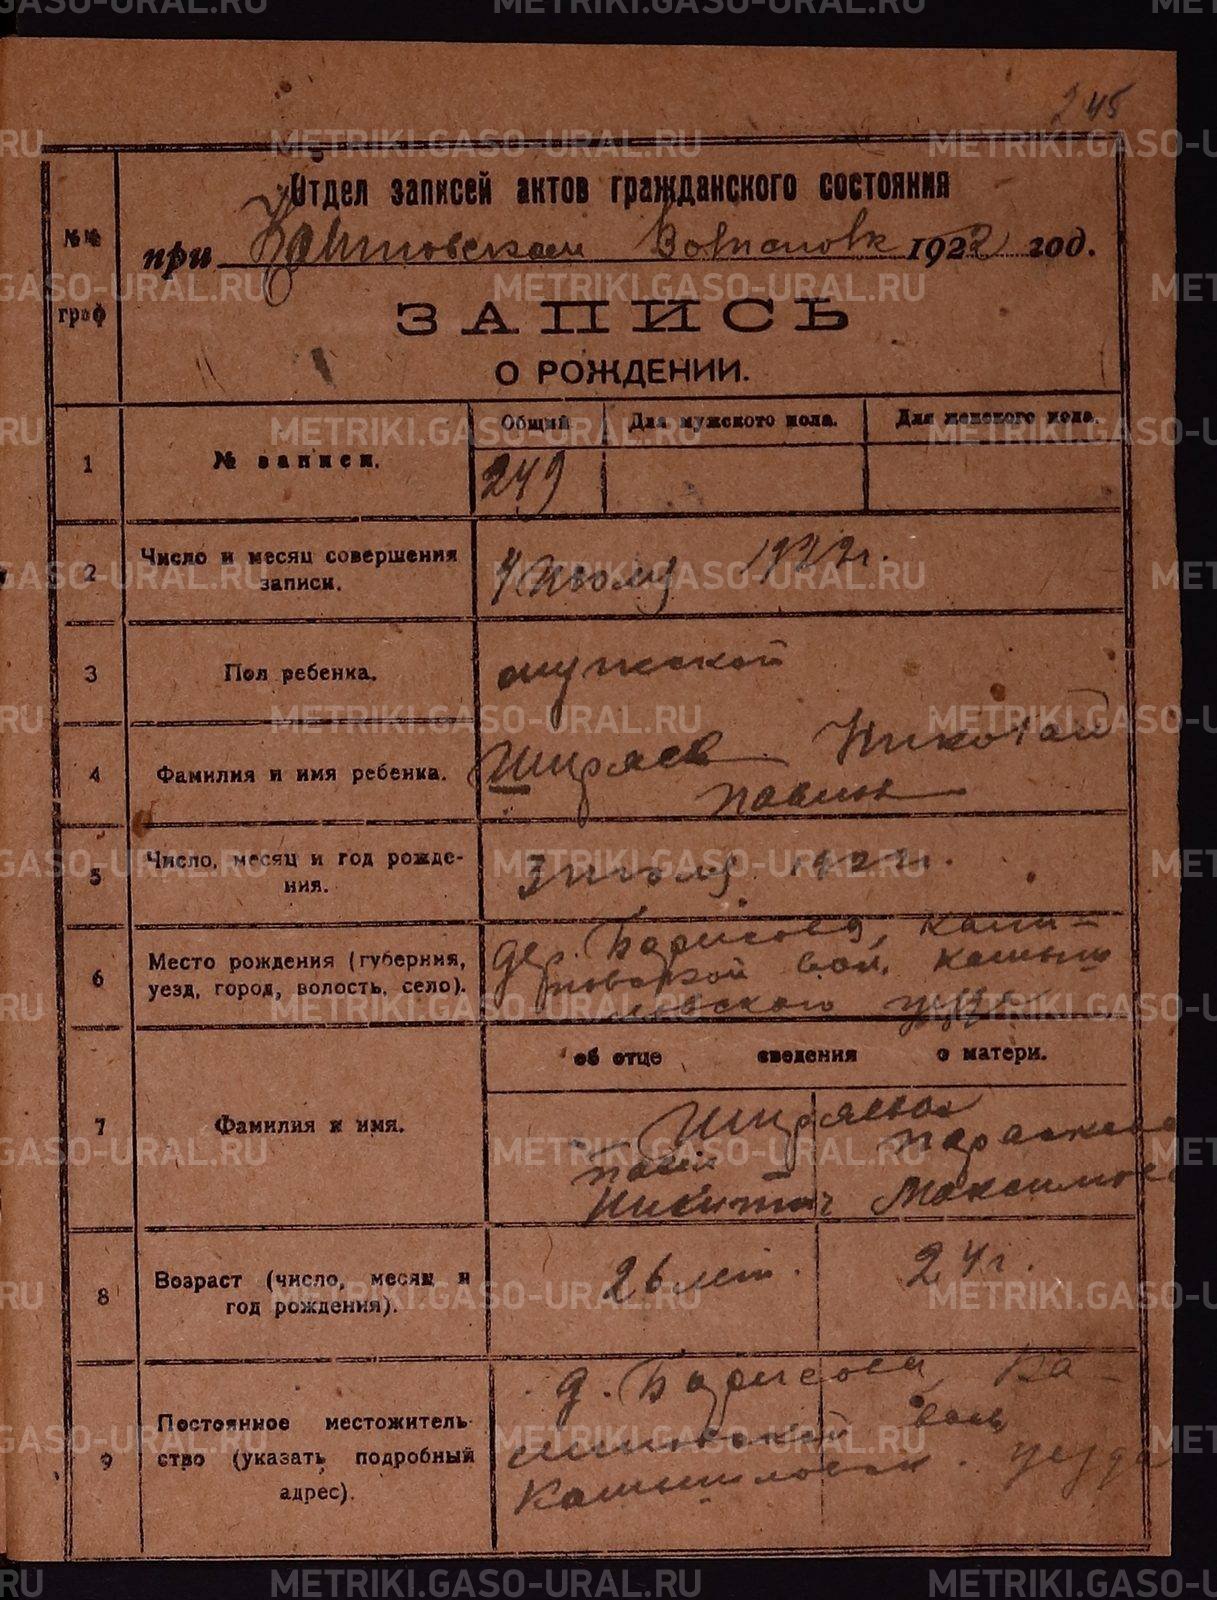 245
Отдел записей актов гражданского состояния
при 1922 год.
№№ граф
ЗАПИСЬ
О РОЖДЕНИИ.
Общий Для мужского пола. Для женского пола.
1 № записи. 249
2 Число и месяц совершения
записи.
4 июля 1922 г.
3 Пол ребенка. мужской
4 Фамилия и имя ребенка. Ширяев Николай
Павлов
5 Число, месяц и год рожде-
ния.
3 июля 1922 г.
6 Место рождения (губерния,
уезд, город, волость, село).
дер. Борисова,
вол. Камыш
ловского уезда
об отце сведения о матери.
7 Фамилия и имя.
Ширяевы
Павел Параскева
Никитич Максимов
8 Возраст (число, месяц и
год рождения).
26 лет. 24 г.
9 Постоянное местожитель-
ство (указать подробный
адрес).
д. Борисова, Ка-
волос
Камышловск. уезда
METRIKI.GASO-URAL.RU